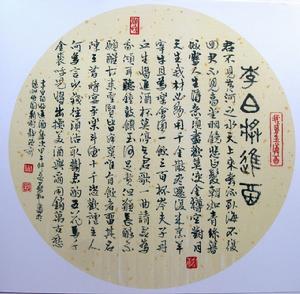 李白將進酒
君不見黃河之水天上來奔流到海不復
回君不見高堂明鏡悲白髮朝如青絲暮
成雪人生得意須盡歡莫使金樽空對月
天生我材必有用千金散盡還復來烹羊
宰牛且為樂會須一飲三百杯岑夫子丹
丘生將進酒杯莫停與君歌一曲請君為
我傾耳聽鐘鼓饌玉何足貴但願長醉不
願醒古來聖賢皆寂寞惟有飲者留其名
陳王昔時宴平樂斗酒十千恣歡謔主人
何為言少錢徑須沽取對君酌五花馬千
金裘呼兒將出換美酒與爾同銷萬古愁